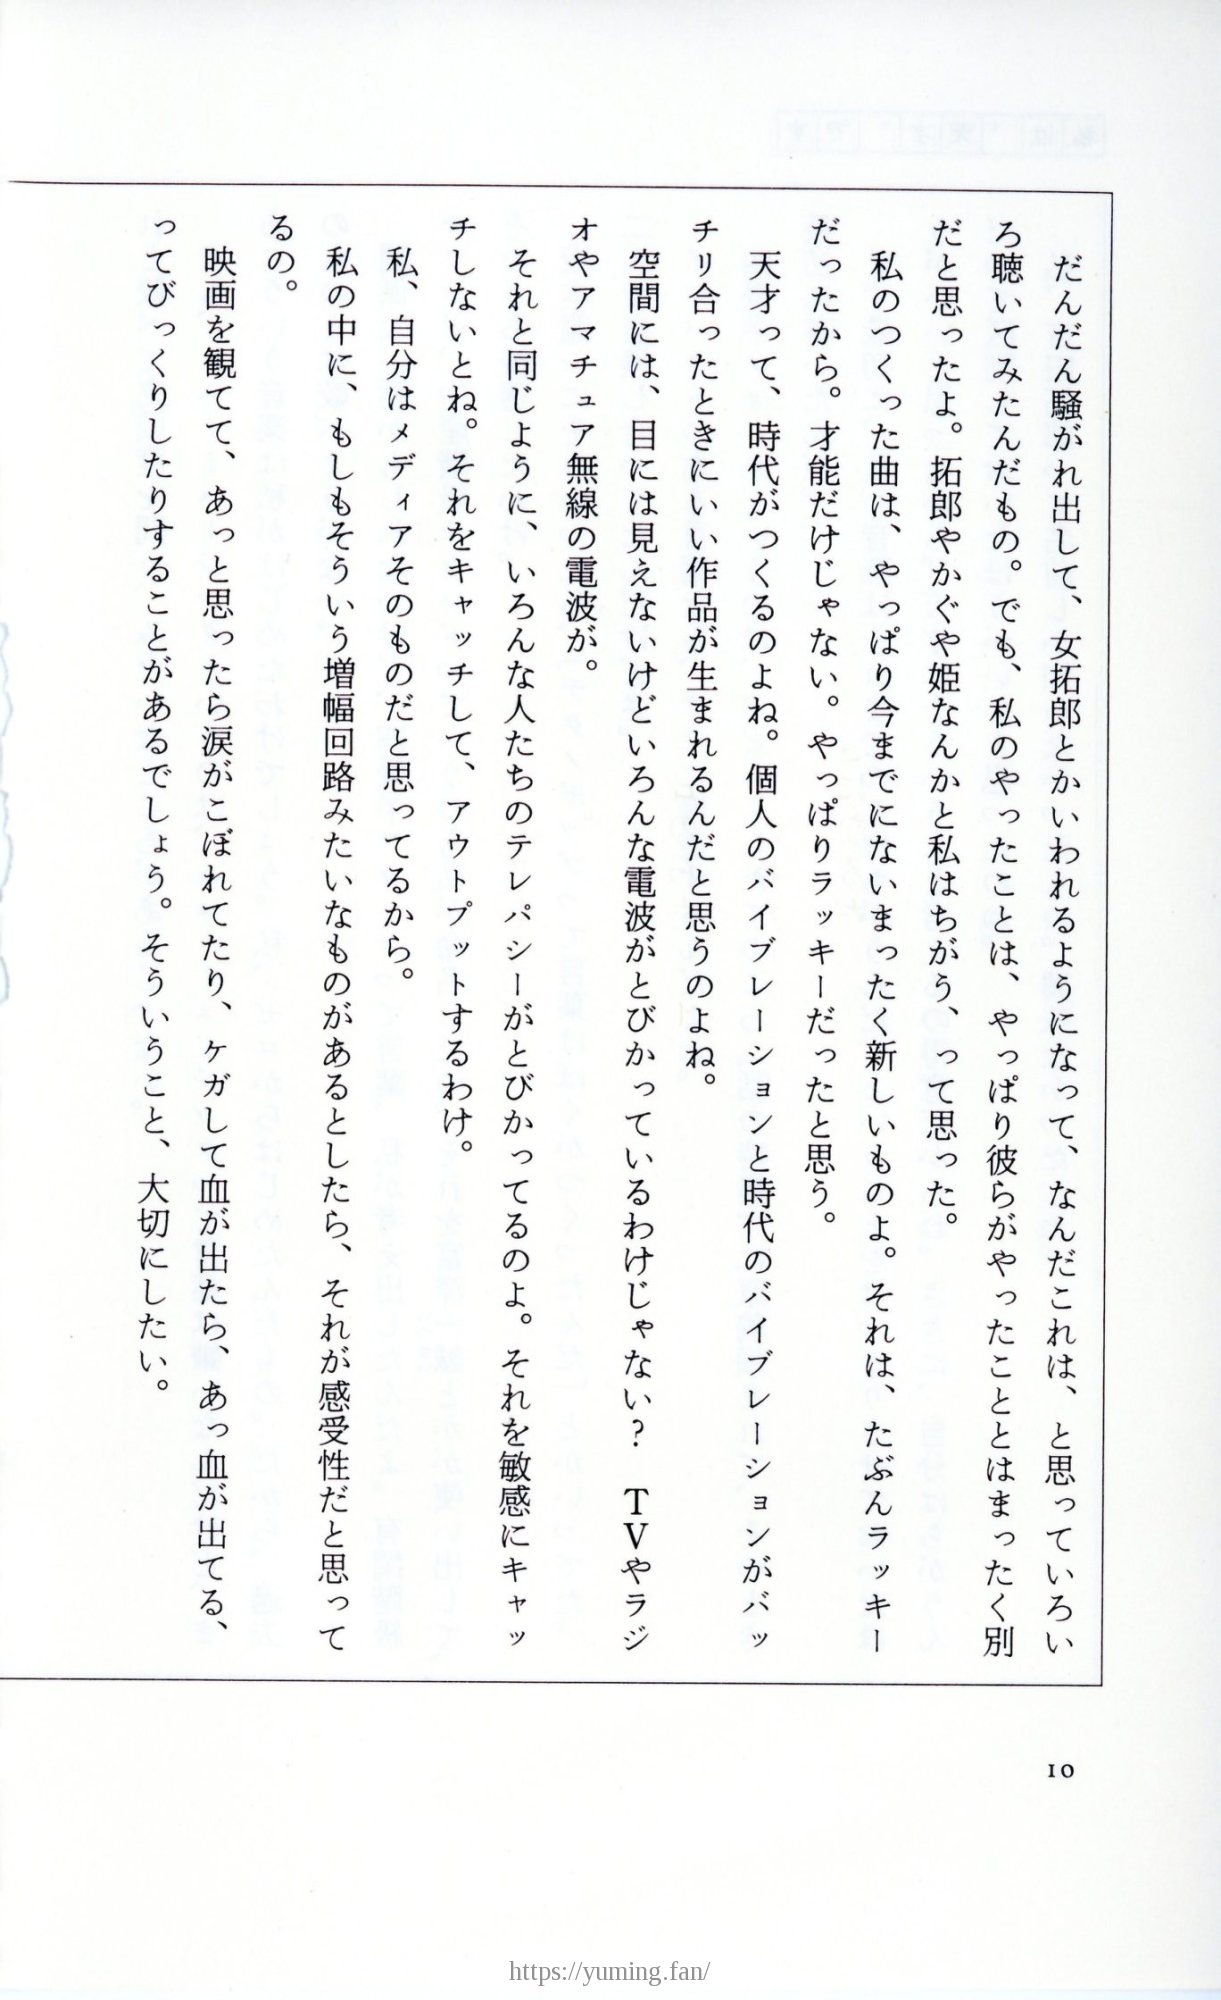 だんだん騒がれ出して、女拓郎とかいわれるようになって、なんだこれは、と思っていろい
ろ聴いてみたんだもの。でも、私のやったことは、やっぱり彼らがやったこととはまったく別
だと思ったよ。拓郎やかぐや姫なんかと私はちがう、って思った。
　私のつくった曲は、やっぱり今までにないまったく新しいものよ。それは、たぶんラッキー
だったから。才能だけじゃない。やっぱりラッキーだったと思う。
　天才って、時代がつくるのよね。個人のバイブレーションと時代のバイブレーションがバッ
チリ合ったときにいい作品が生まれるんだと思うのよね。
　空間には、目には見えないけどいろんな電波がとびかっているわけじゃない？　TVやラジ
オやアマチュア無線の電波が。
　それと同じように、いろんな人たちのテレパシーがとびかってるのよ。それを敏感にキャッ
チしないとね。それをキャッチして、アウトプットするわけ。
　私、自分はメディアそのものだと思ってるから。
　私の中に、もしもそういう増幅回路みたいなものがあるとしたら、それが感受性だと思って
るの。
　映画を観てて、あっと思ったら涙がこぼれてたり、ケガして血が出たら、あっ血が出てる、
ってびっくりしたりすることがあるでしょう。そういうこと、大切にしたい。
10
https://yuming.fan/